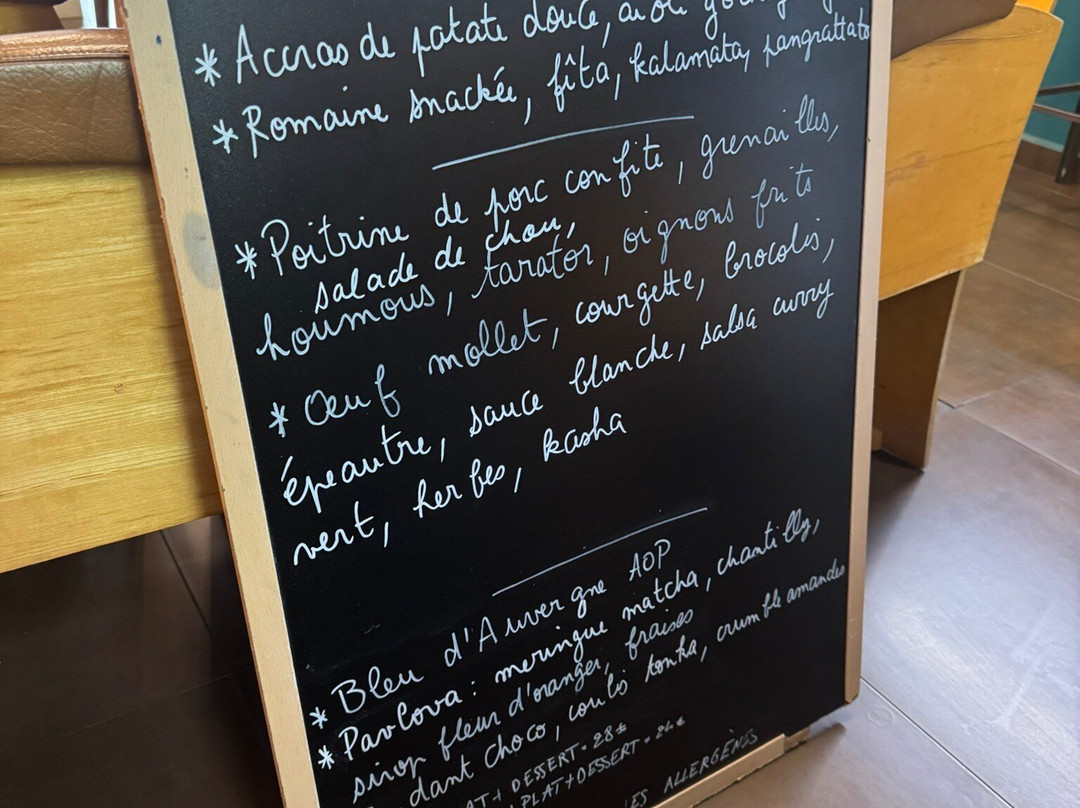 * Accras de patate douce,
* Romaine snackée, fêta, kalamata, pangrattato
* Poitrine de porc confite, grenailles,
salade de chou,
houmous, tarator, oignons frits
* Œuf mollet, courgette, brocolis,
épeautre, sauce blanche, salsa curry
vert, herbes, kasha
* Bleu d'Auvergne AOP
* Pavlova : meringue matcha, chantilly,
sirop fleur d'oranger, fraises
dant choco, coulis tonka, crumble amandes
AT + DESSERT = 28€
PLAT + DESSERT = 24€
ES ALLERGÈNES